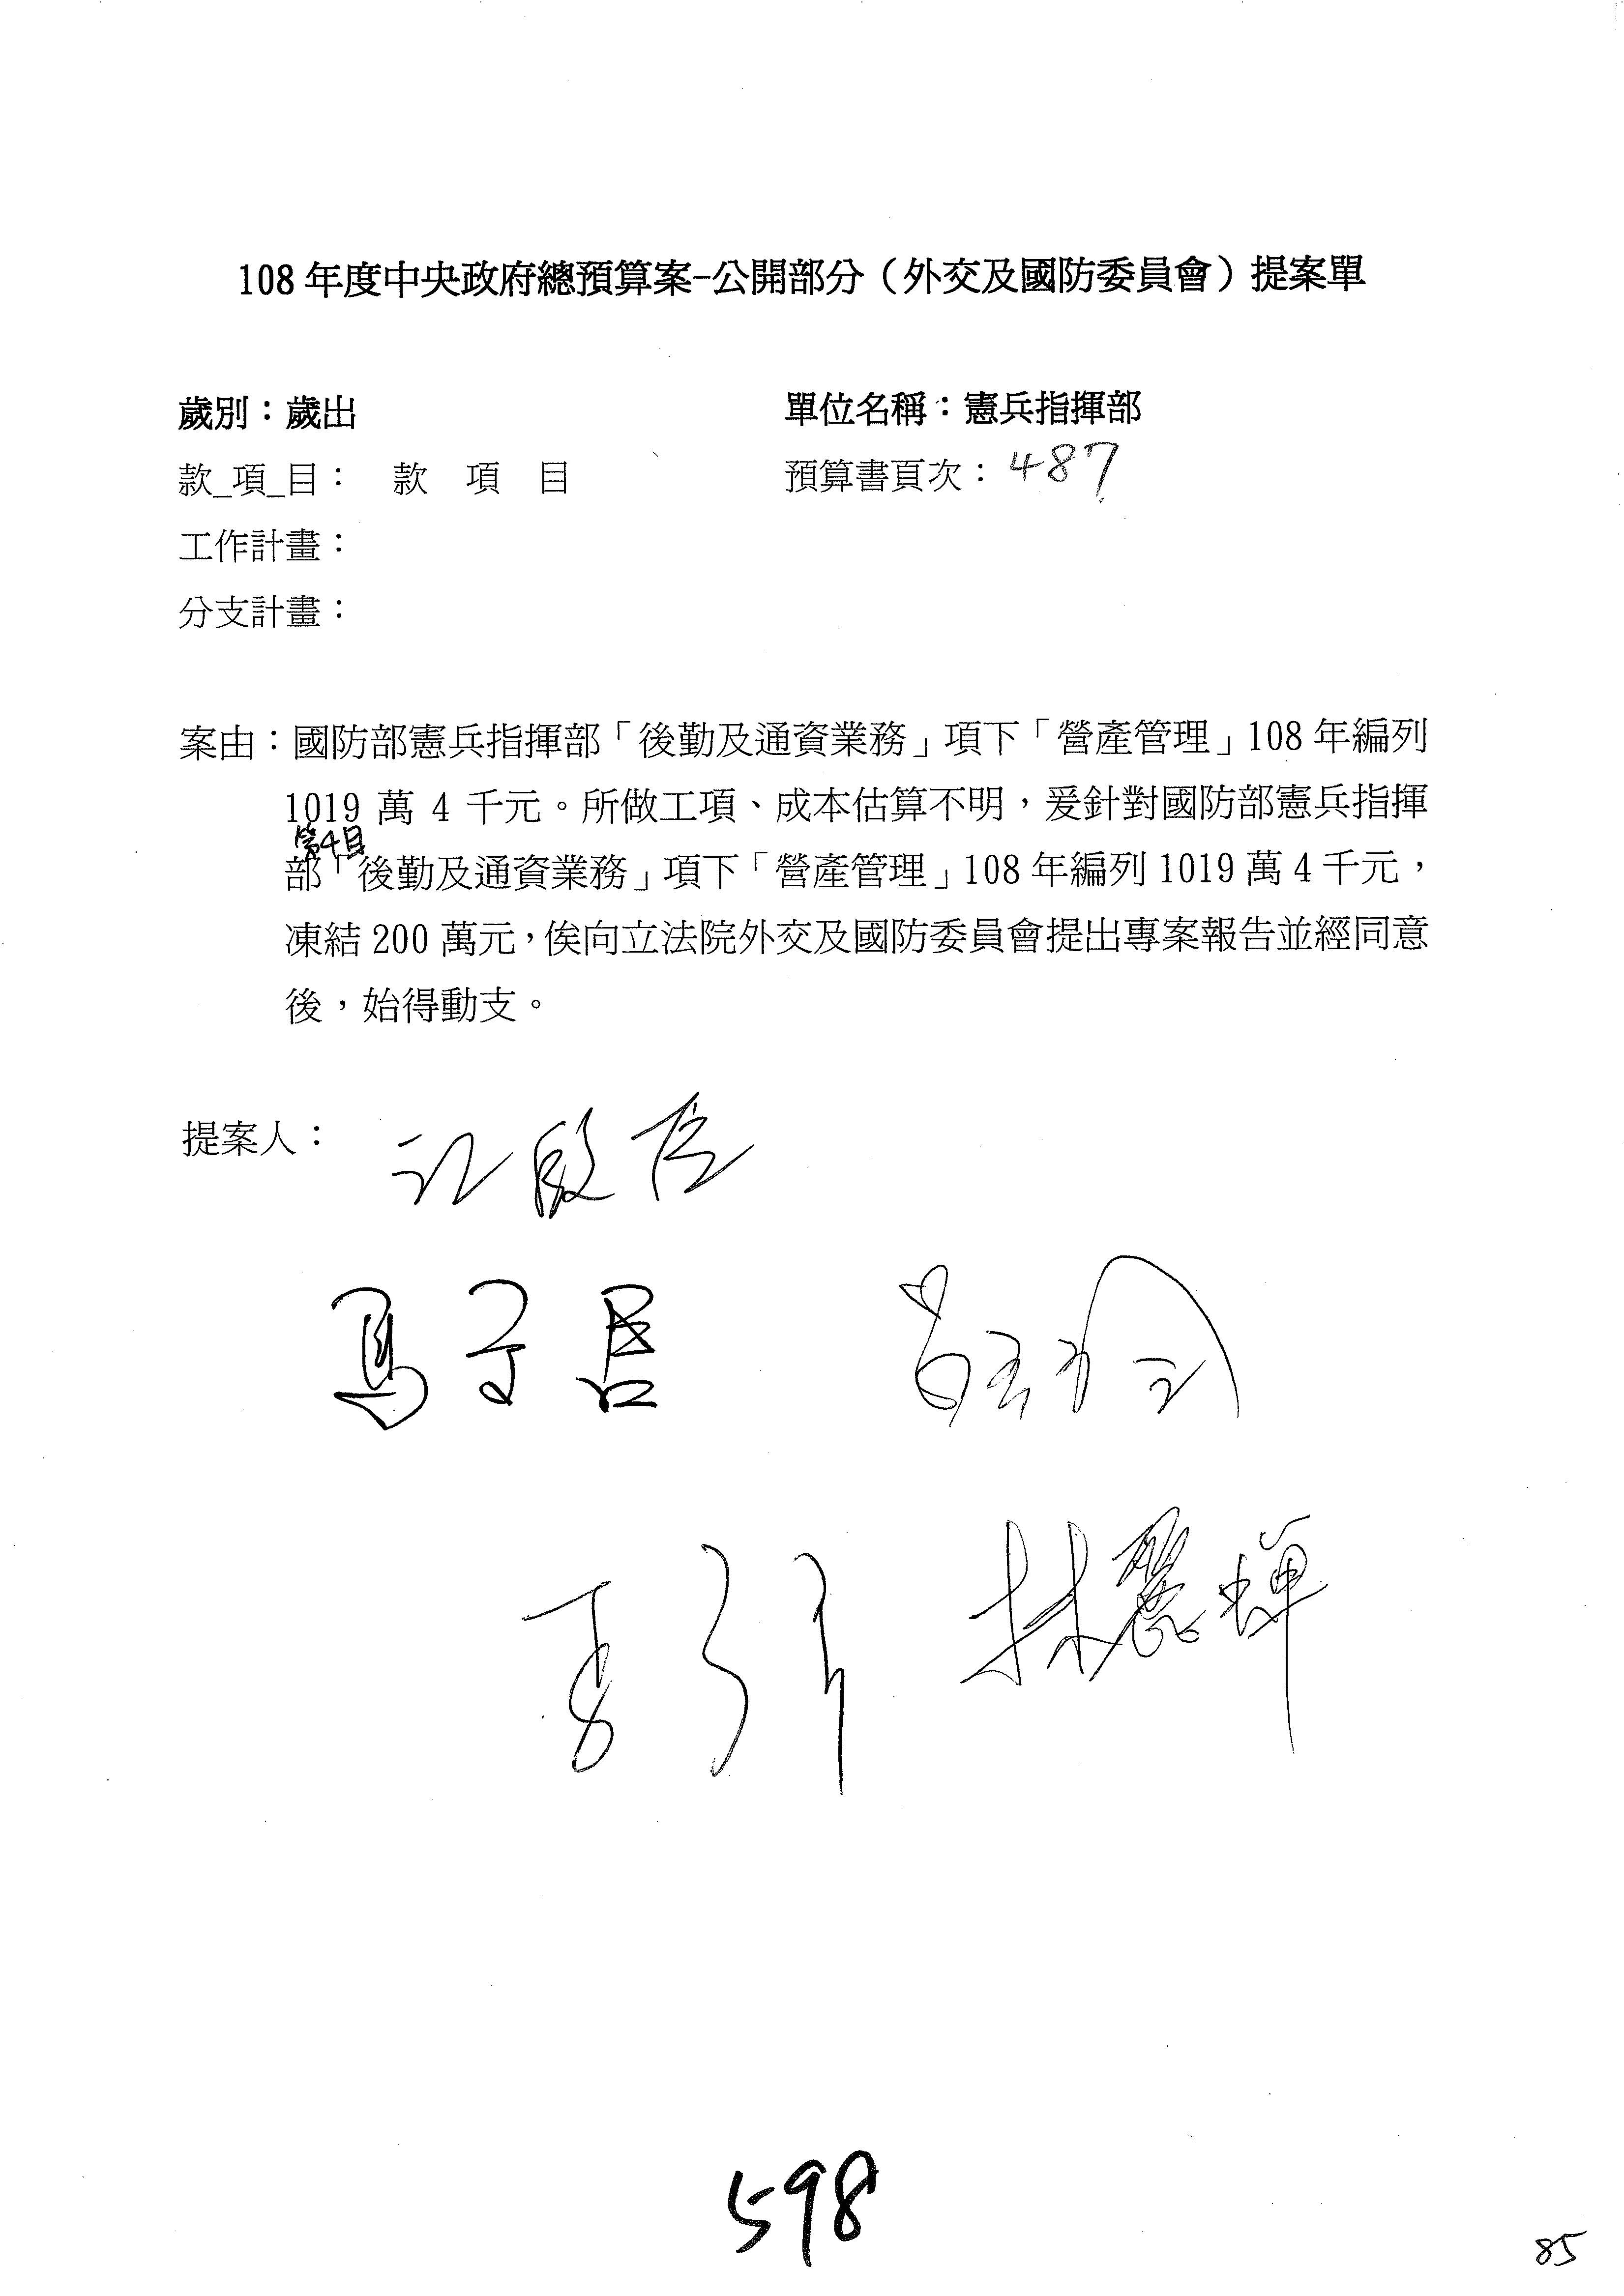 108 年度中央政府總預算案-公開部分（外交及國防委員會）提案單
歲別：歲出
單位名稱：憲兵指揮部
款_項_目： 款 項 目
預算書頁次：487
工作計畫：
分支計畫：
案由：國防部憲兵指揮部「後勤及通資業務」項下「營產管理」108 年編列
1019 萬 4 千元。所做工項、成本估算不明，爰針對國防部憲兵指揮
第4目
部「後勤及通資業務」項下「營產管理」108 年編列 1019 萬 4 千元，
凍結 200 萬元，俟向立法院外交及國防委員會提出專案報告並經同意
後，始得動支。
提案人：
江啟臣
馬文君
林麗蟬
598
85